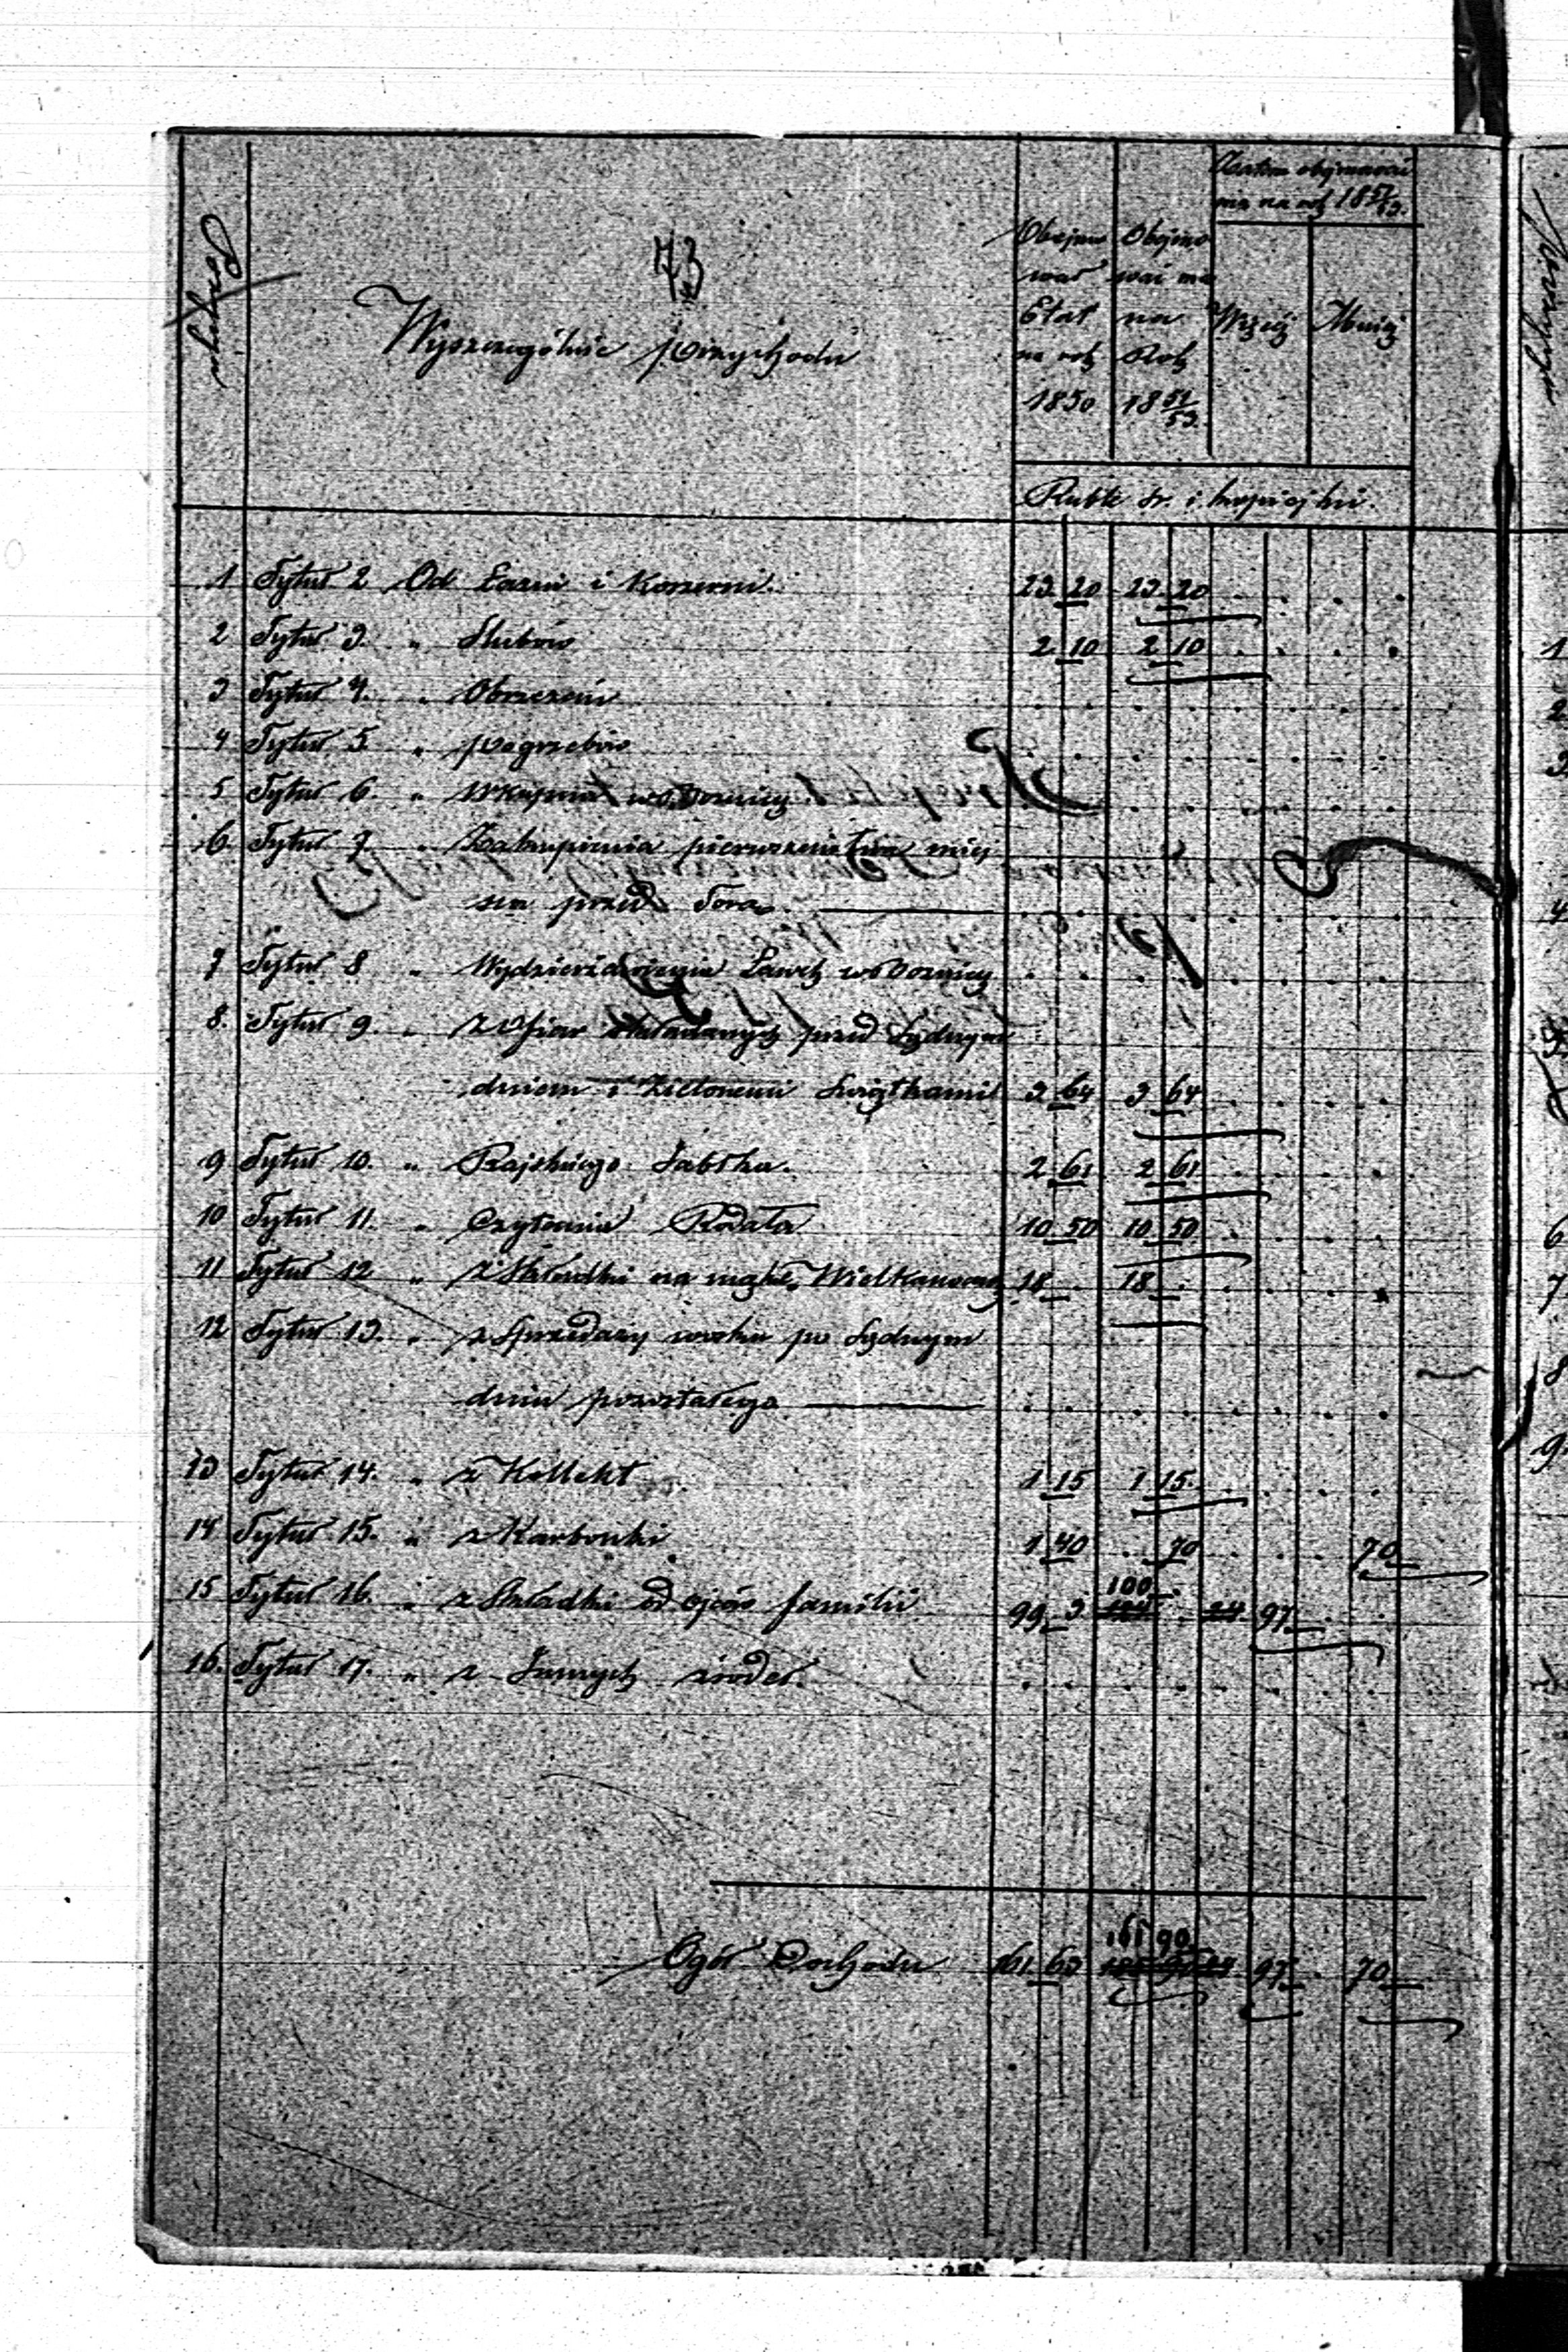 73
Pozycya
Wyszczególnienie przychodu
Obejmował Etat na rok 1850
Obejmować ma na Rok 18 51/53.
Zatem obejmować ma na rok 18 51/53.
Więcej Mniej
Ruble sr. i kopiejki.
1 Tytuł 2 Od Łaźni i Koszerni. 23 20 23 20
2 Tytuł 3. „ Ślubów 2 10 2 10
3 Tytuł 4. „ Obrzezań
4 Tytuł 5 „ pogrzebów
5 Tytuł 6. „ Wkupna w Bożnicy
6. Tytuł 7. „ Zakupienia pierwszeństwa miej
sca przed Torą
7 Tytuł 8 „ Wydzierżawienia Ławek w Bożnicy
8. Tytuł 9 „ z Ofiar składanych przed Sądnym
dniem i Zielonemi Świątkami 3 64 3 64
9 Tytuł 10. „ Rajskiego Jabłka. 2 61 2 61
10 Tytuł 11. „ Czytania Rodała 10 50 10 50
11 Tytuł 12 „ z Składki na mąkę Wielkanocną 18 18
12 Tytuł 13. „ z Sprzedaży wosku po Sądnym
dniu pozostałego
13 Tytuł 14. „ z Kollekt 1 15 1 15.
14 Tytuł 15. „ z Karbonki 1 40 70 70
15 Tytuł 16. „ z Składki od ojców familii 99 3 100 97
16. Tytuł 17. „ z Innych źródeł.
Ogół Dochodu 161 63 161 90 97 70